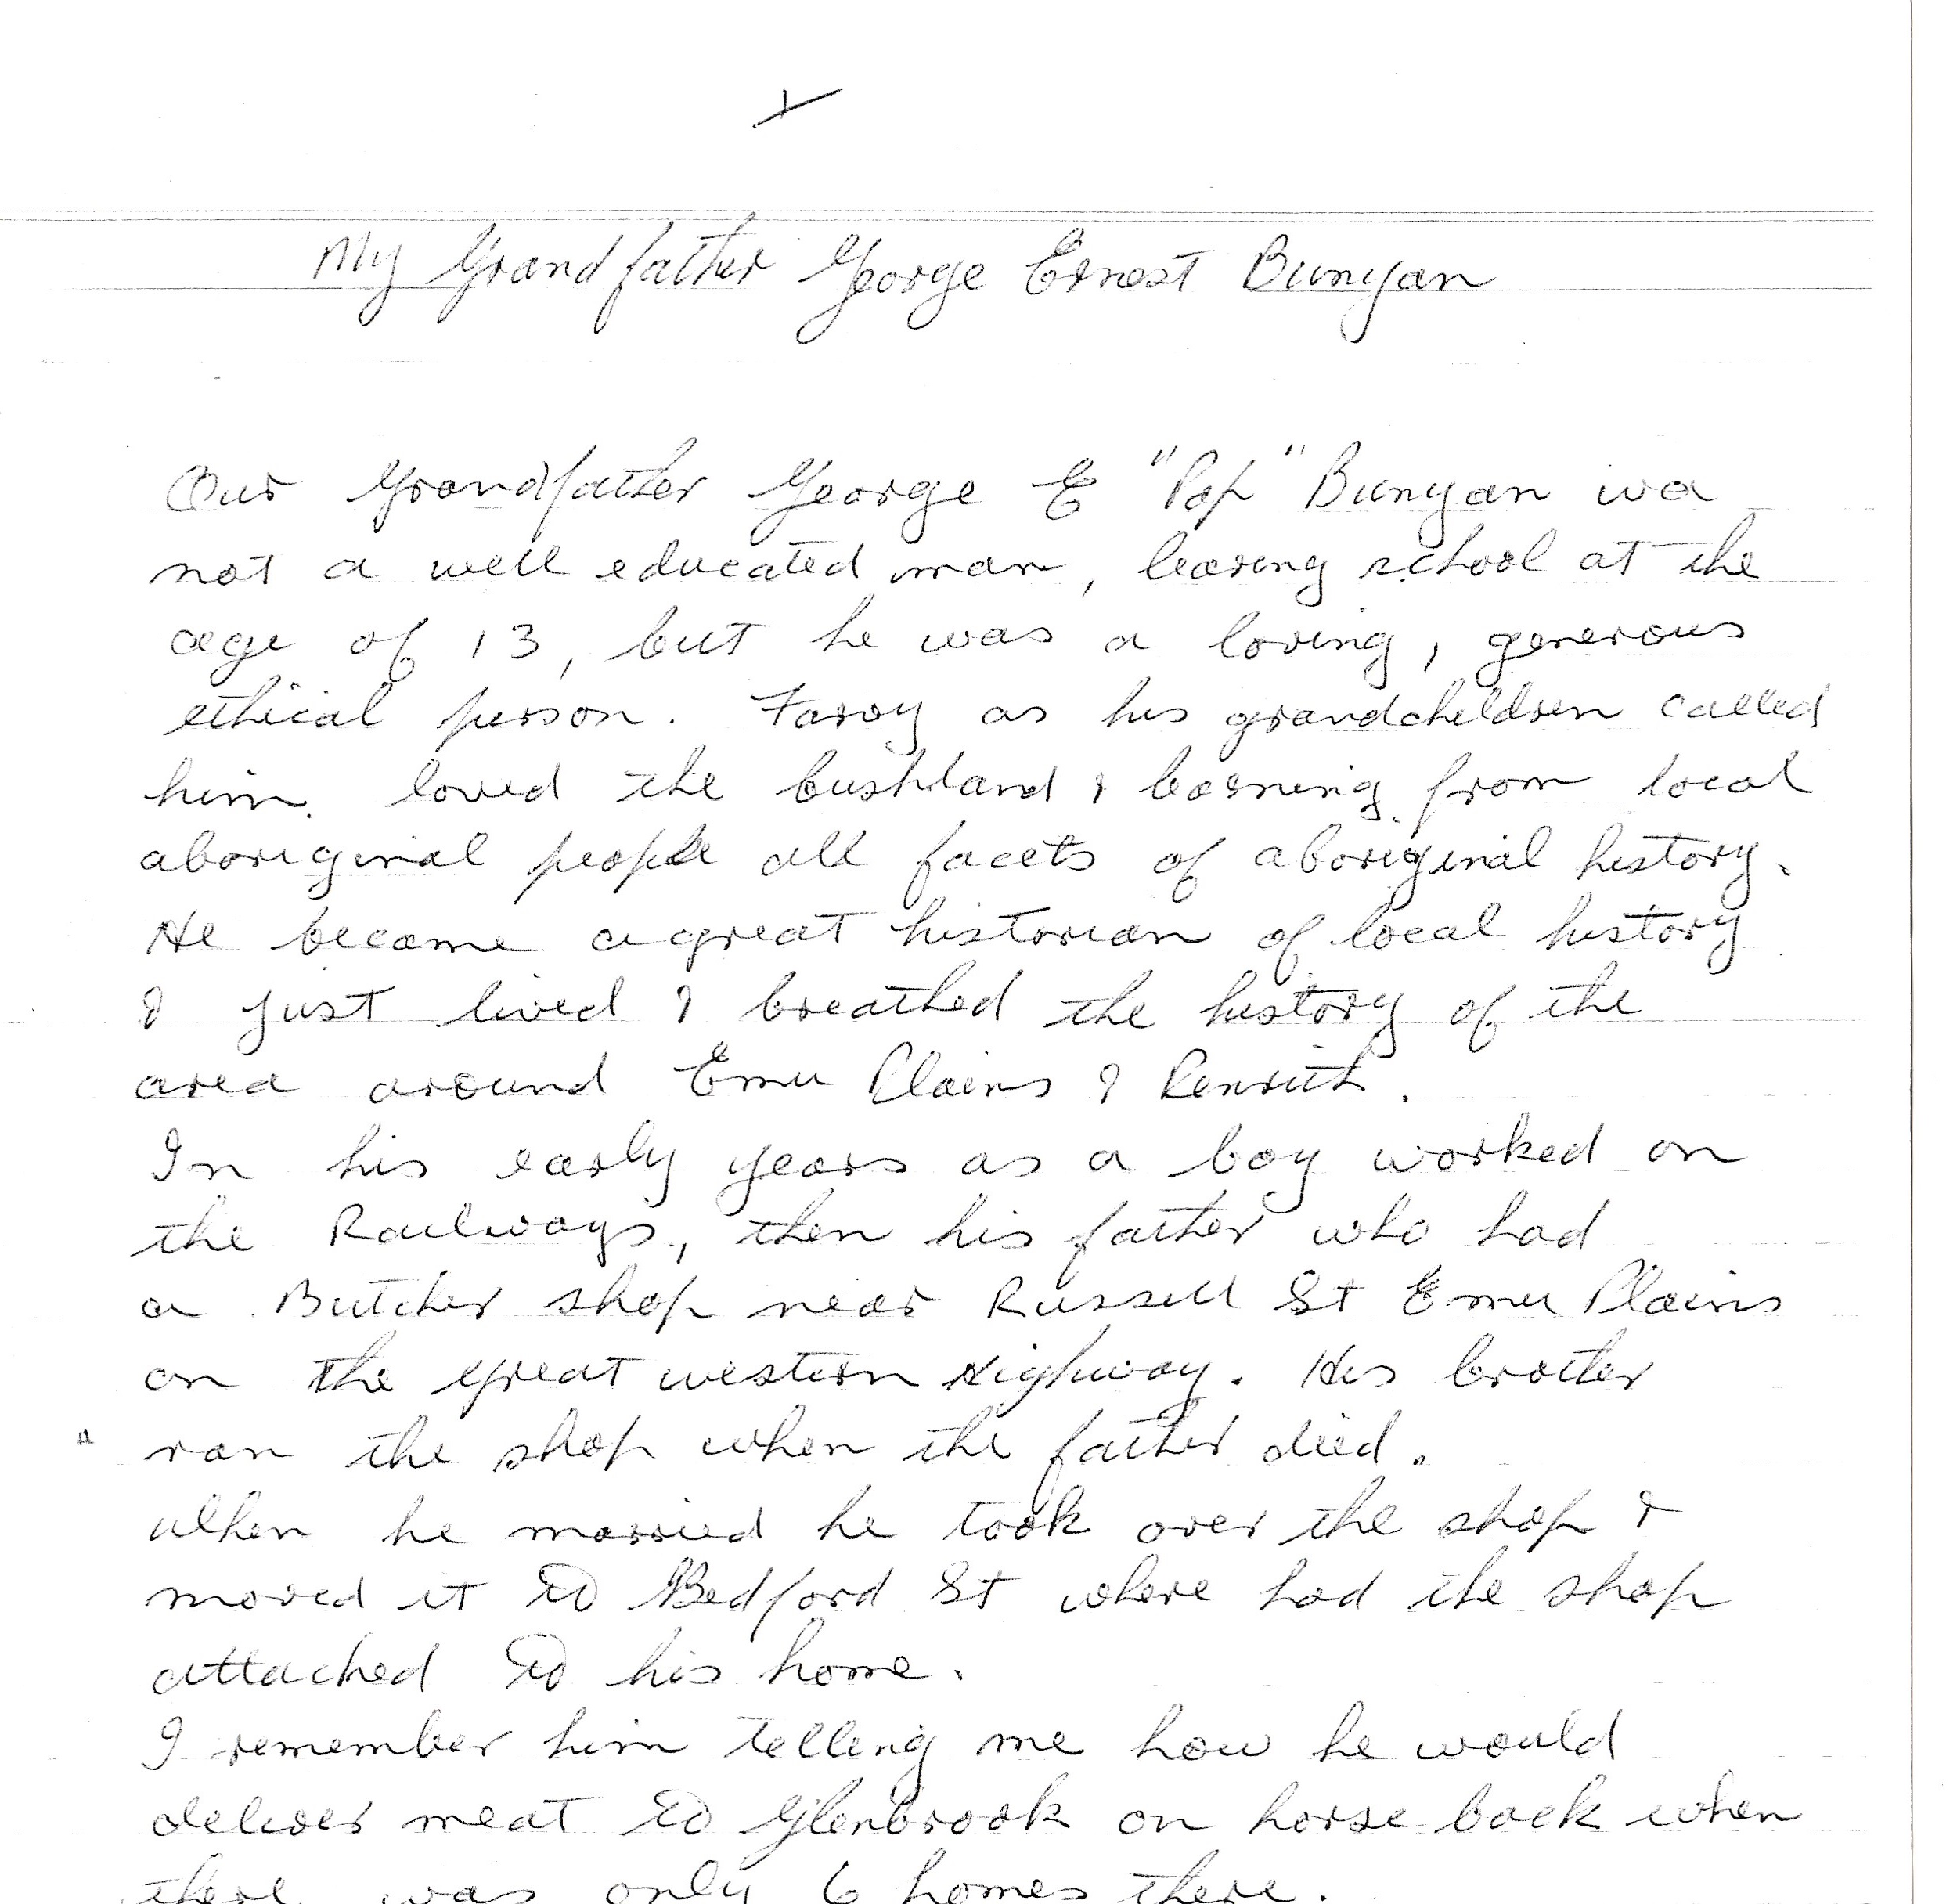 My Grandfather George Ernest Bunyan
Our Grandfather George E "Pop" Bunyan wa
not a well educated man, leaving school at the
age of 13, but he was a loving, generous
ethical person. Farvy as his grandchildren called
him. loved the bushland & learning from local
aboriginal people all facets of aboriginal history.
He became a great historian of local history
& just lived & breathed the history of the
area around Emu Plains & Penrith.
In his early years as a boy worked on
the Railways, then his father who had
a Butcher shop near Russell St Emu Plains
on the great western Highway. His brother
ran the shop when the father died.
When he married he took over the shop &
moved it to Bedford St where had the shop
attached to his home.
I remember him telling me how he would
deliver meat to Glenbrook on horse back when
there was only 6 homes there.